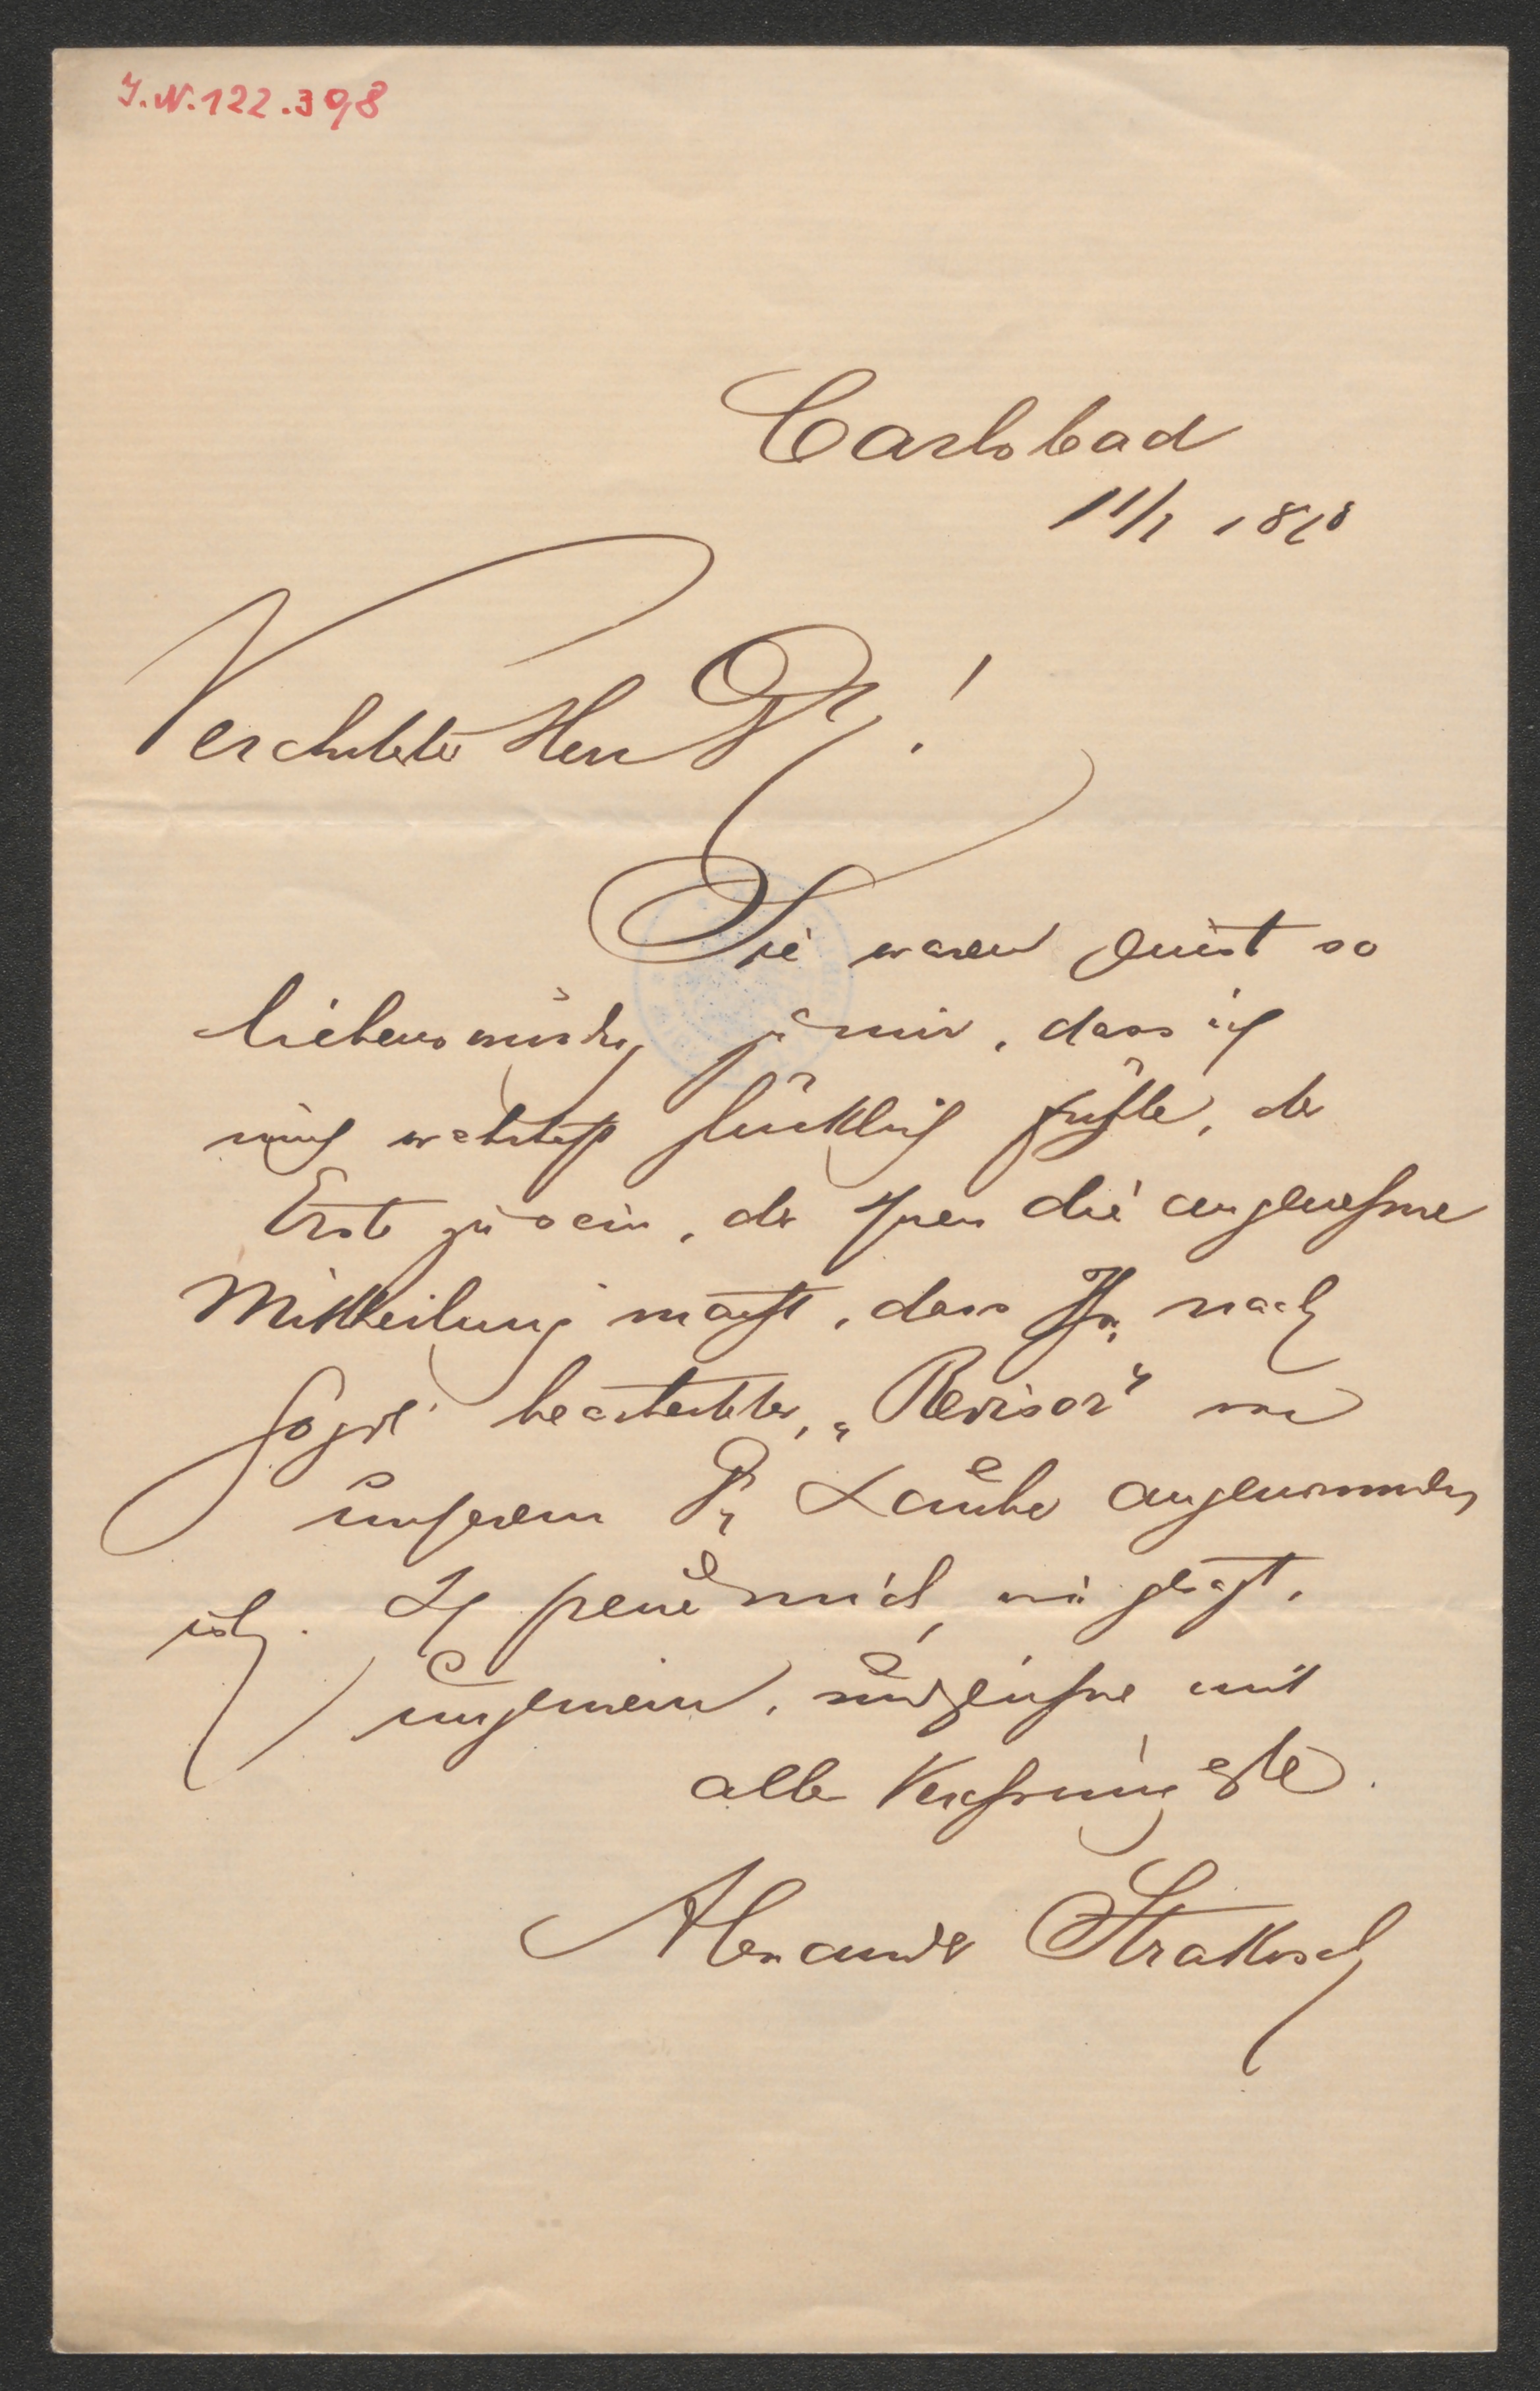 I.N. 122.398
Carlsbad
11/7 1878
Verehrtester Herr Dr!
Sie waren zuerst so
liebenswürdig zu mir, dass ich
mich wahrhaft glücklich fühle, der
Erste zu sein, der Ihnen die angenehme
Mittheilung macht, dass Ihr nach
Gogol bearbeiteter „Revisor" von
unserem Dr Laube angenommen
ist. Ich freue mich, wie gesagt,
ungemein, und zeichne mit
aller Verehrung
Alexander Strakosch